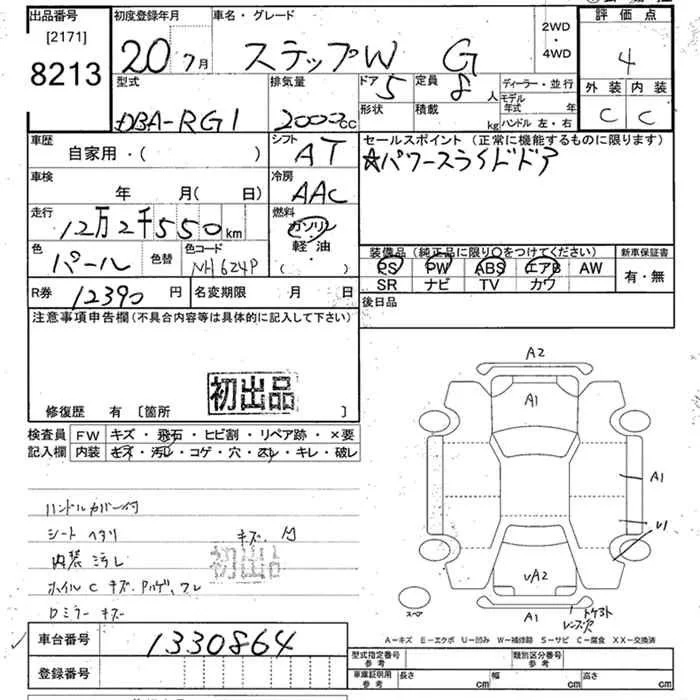 出品番号
[2171]
8213
初度登録年月
20 7月
車名・グレード
ステップW G
2WD
・
4WD
評価点
4
外装 内装
C C
型式
DBA-RG1
排気量
2000cc
ドア 5
形状
定員 8人
積載 kg
ディーラー・並行
モデル年式 年
ハンドル 左・右
車歴
自家用・( )
シフト
AT
セールスポイント(正常に機能するものに限ります)
☆パワースライドドア
車検
年 月( 日)
冷房
AAC
走行
12万2千550km
燃料
ガソリン
軽・油
( )
色
パール
色替
色コード
NH624P
装備品(純正品に限り○をつけてください)
PS PW ABS エアB AW
SR ナビ TV カワ
新車保証書
有・無
R券 12390円
名変期限 月 日
後日品
注意事項申告欄(不具合内容等は具体的に記入して下さい)
初出品
修復歴 有 [箇所 ]
検査員記入欄
FW キズ・飛石・ヒビ割・リペア跡・×要
内装 キズ・汚レ・コゲ・穴・スレ・キレ・破レ
ハンドルカバー付
シート ヘタリ キズ、
内装 汚レ
初出品
ホイルC キズ、
Dミラー キズ
A2
A1
A1
U1
UA2
A1
スペア
A-キズ E-エクボ U-凹み W-補修跡 S-サビ C-腐食 XX-交換済
車台番号 1330864
登録番号
型式指定番号
参考
類別区分番号
参考
車庫証明用
参考
長さ cm
幅 cm
高さ cm